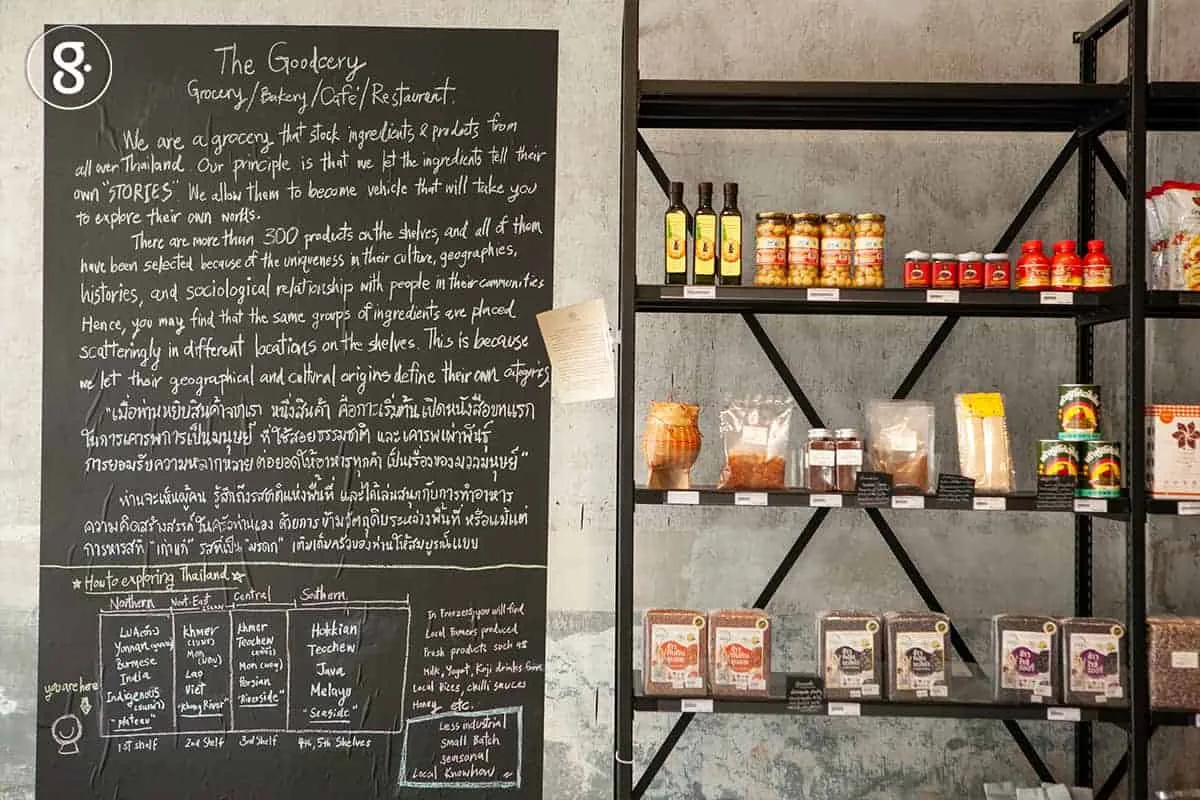 g.
The Goodcery
Grocery/Bakery/Café/Restaurant.
We are a grocery that stock ingredients & products from
all over Thailand. Our principle is that we let the ingredients tell their
own "STORIES" We allow them to become vehicle that will take you
to explore their own worlds.
There are more than 300 products on the shelves, and all of them
have been selected because of the uniqueness in their culture, geographies,
histories, and sociological relationship with people in their communities
Hence, you may find that the same groups of ingredients are placed
scatteringly in different locations on the shelves. This is because
we let their geographical and cultural origins define their own categories
"เมื่อท่านหยิบสินค้าจากเรา หนึ่งสินค้า คือการเริ่มต้นเปิดหนังสือบทแรก
ในการเคารพการเป็นมนุษย์ ที่ใช้สอยธรรมชาติ และเคารพเผ่าพันธุ์
การยอมรับความหลากหลาย ต่อยอดให้อาหารทุกคำ เป็นเรื่องของมวลมนุษย์"
ท่านจะเห็นผู้คน รู้สึกถึงรสชาติแห่งพื้นที่ และได้เล่นสนุกกับการทำอาหาร
ความคิดสร้างสรรค์ในครัวท่านเอง ด้วยการข้ามวัตถุดิบระหว่างพื้นที่ หรือแม้แต่
การหารสที่ "เก่าแก่" รสที่เป็น "มรดก" เติมเต็มครัวของท่านให้สมบูรณ์แบบ
☆ How to exploring Thailand ☆
Northern North-East Central Southern
Yunnan
Burmese
India
Indigenous
"plateau"
Khmer
Mon
Lao
Viet
"Khong River"
Khmer
Teochew
Mon
Persian
"Riverside"
Hokkian
Teochew
Java
Melayo
"Seaside"
1st shelf 2nd Shelf 3rd Shelf 4th, 5th Shelves
you are here
In freezers, you will find
Local farmers produced
Fresh products such as
Milk, Yogurt, Koji drinks
Local Rices, chilli sauces
Honey etc.
Less industrial
Small Batch
seasonal
Local Knowhow